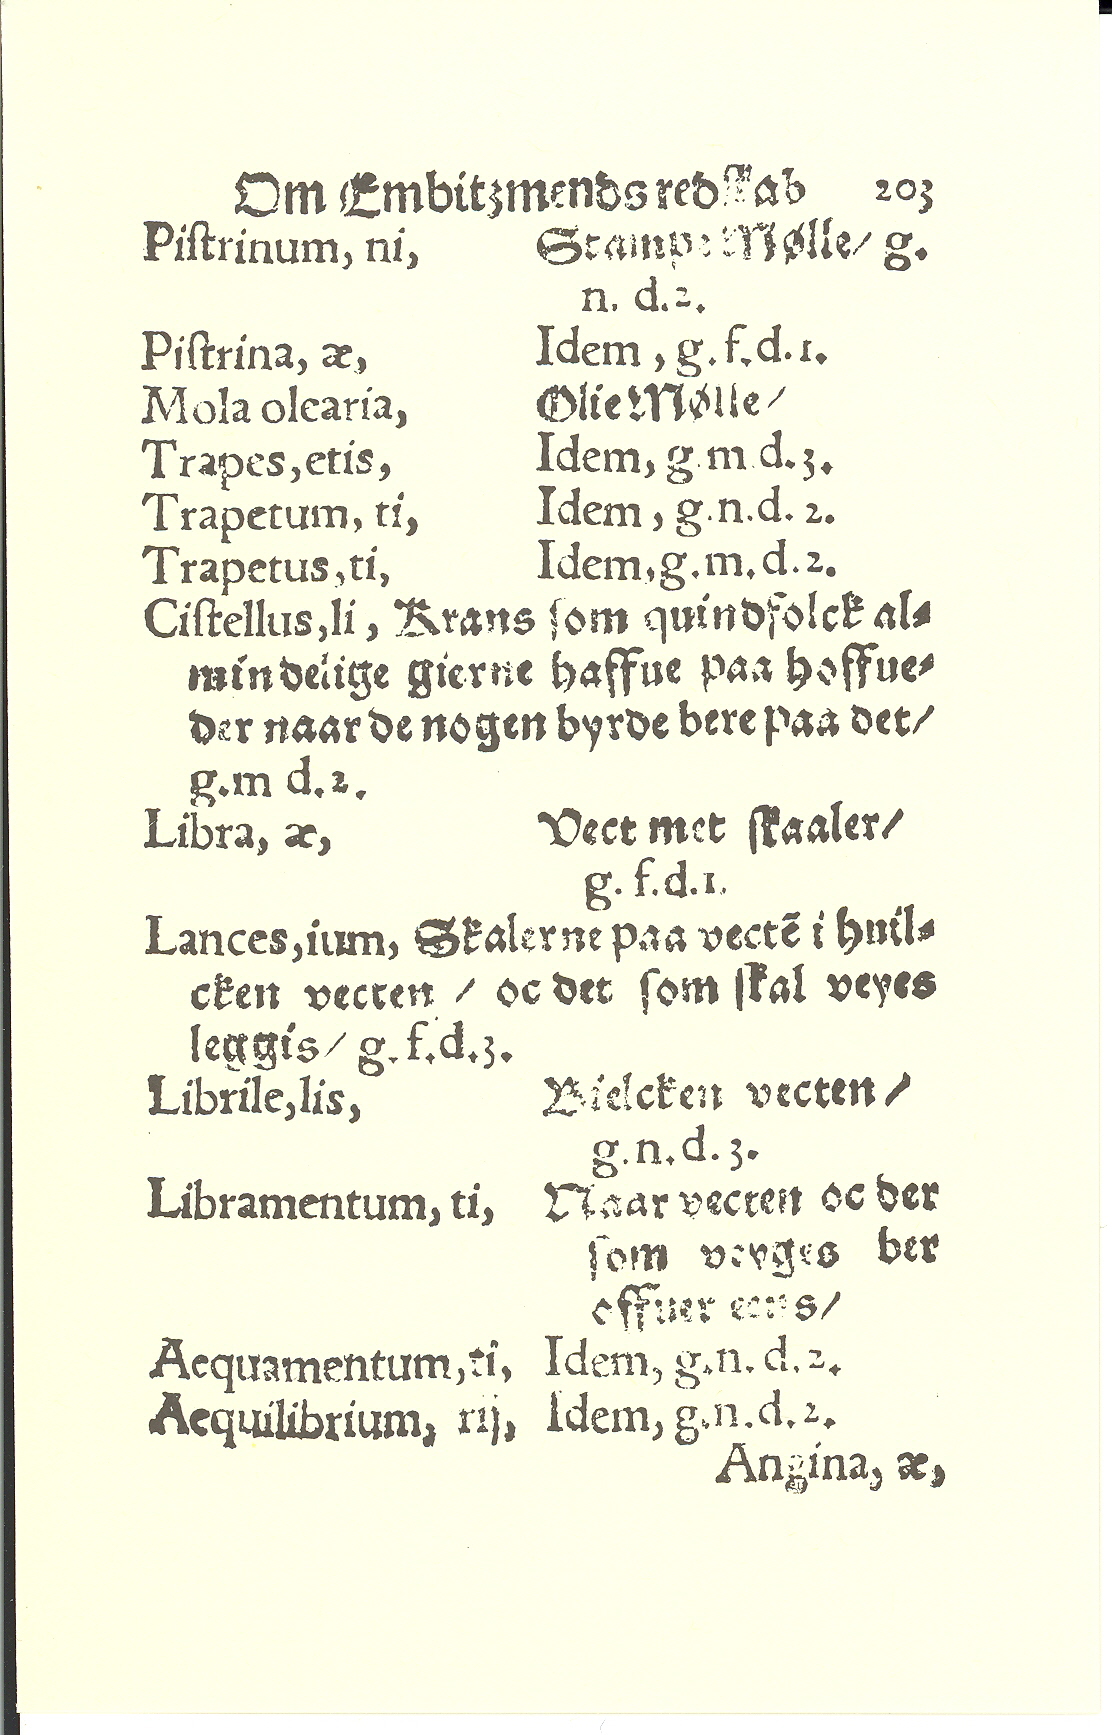 Om Embitzmends redſkab 203
Piſtrinum, ni, Stampe Mølle/ g.
n. d. 2.
Piſtrina, æ, Idem, g. f. d. 1.
Mola olearia, Olie Mølle/
Trapes, etis, Idem, g m d. 3.
Trapetum, ti, Idem, g. n. d. 2.
Trapetus, ti, Idem, g. m. d. 2.
Ciſtellus, li, Krans ſom quindfolck al⸗
mindelige gierne haffue paa hoffue⸗
der naar de nogen byrde bere paa det/
g. m d. 2.
Libra, æ, Vect met ſkaaler/
g. f. d. 1.
Lances, ium, Skalerne paa vectẽ i huil⸗
cken vecten / oc det ſom ſkal veyes
leggis/ g. f. d. 3.
Librile, lis, Bielcken vecten/
g. n. d. 3.
Libramentum, ti, Naar vecten oc der
ſom veyges ber
offuer eens/
Aequamentum, ti, Idem, g. n. d. 2.
Aequilibrium, rij, Idem, g. n. d. 2.
Angina, æ,